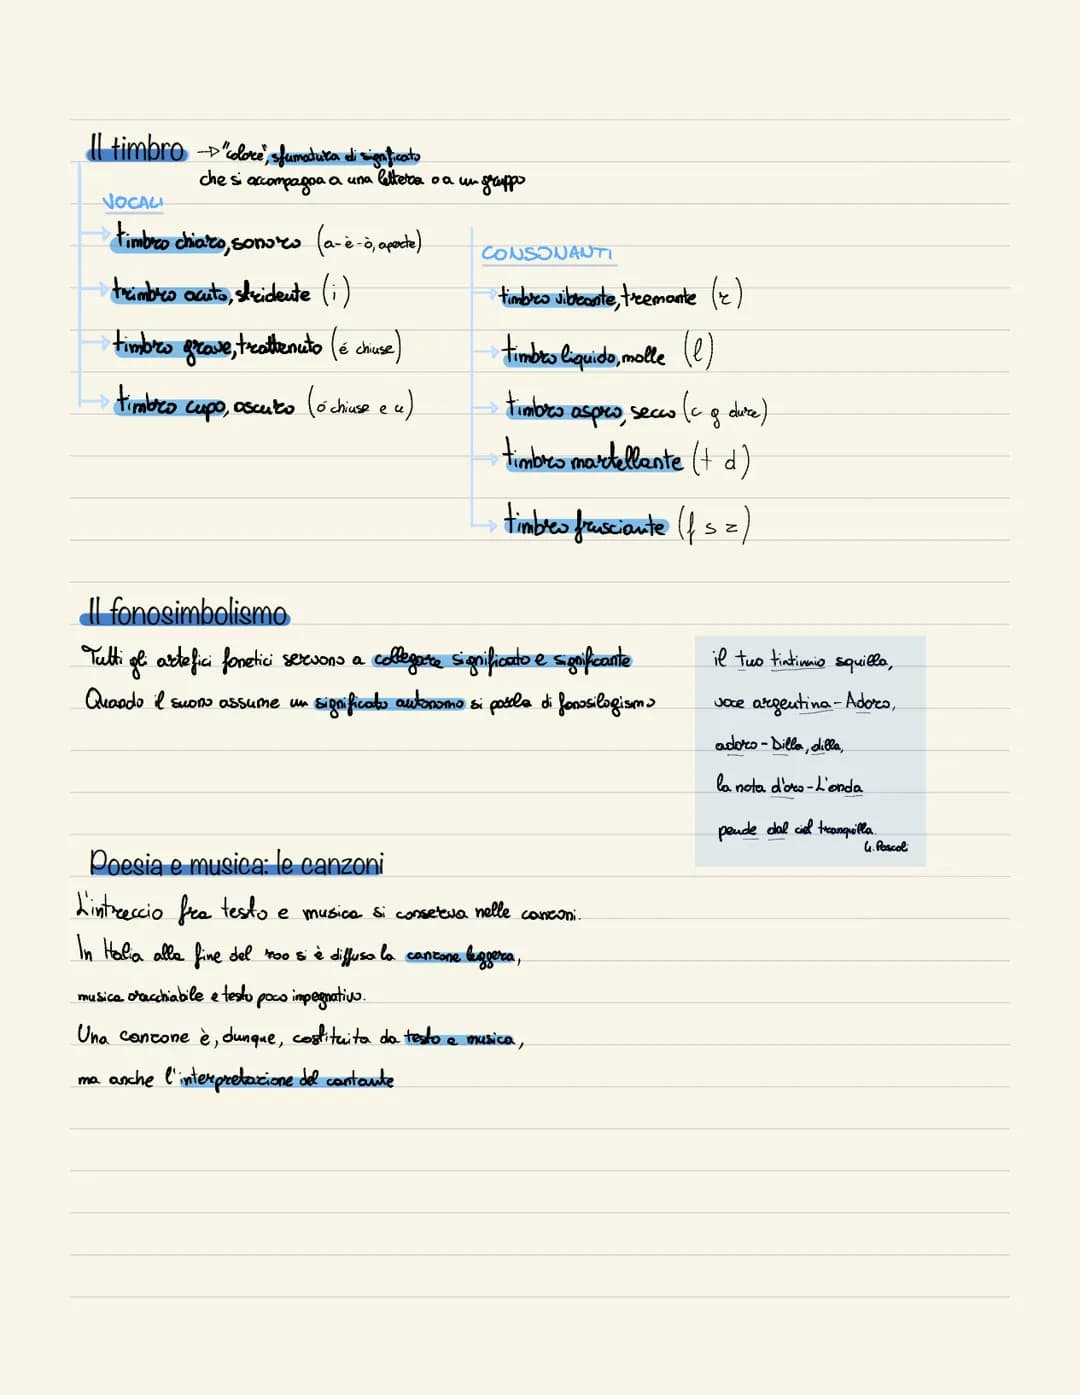 Il timbro → "colore", sfumatura di significato
che si accompagna a una lettera o a un gruppo
VOCALI
timbro chiaro, sonoro (a-è-ò, aperte)
trimbro acuto, stridente (i)
timbro grave, trattenuto (é chiuse)
timbro cupo, oscuro (ó chiuse e u)
CONSONANTI
timbro vibrante, tremante (r)
timbro liquido, molle (l)
timbro aspro, secco (c g dure)
timbro martellante (t d)
timbro frusciante (f s z)
Il fonosimbolismo
Tutti gli artefici fonetici servono a collegare significato e significante
Quando il suono assume un significato autonomo si parla di fonosilogismo
il tuo tintinnio squilla,
voce argentina - Adoro,
adoro - Dilla, dilla,
la nota d'oro - L'onda
pende dal ciel tranquilla.
G. Pascoli
Poesia e musica: le canzoni
L'intreccio fra testo e musica si conserva nelle canzoni.
In Italia alla fine del '800 si è diffusa la canzone leggera,
musica orecchiabile e testo poco impegnativo.
Una canzone è, dunque, costituita da testo e musica,
ma anche l'interpretazione del cantante